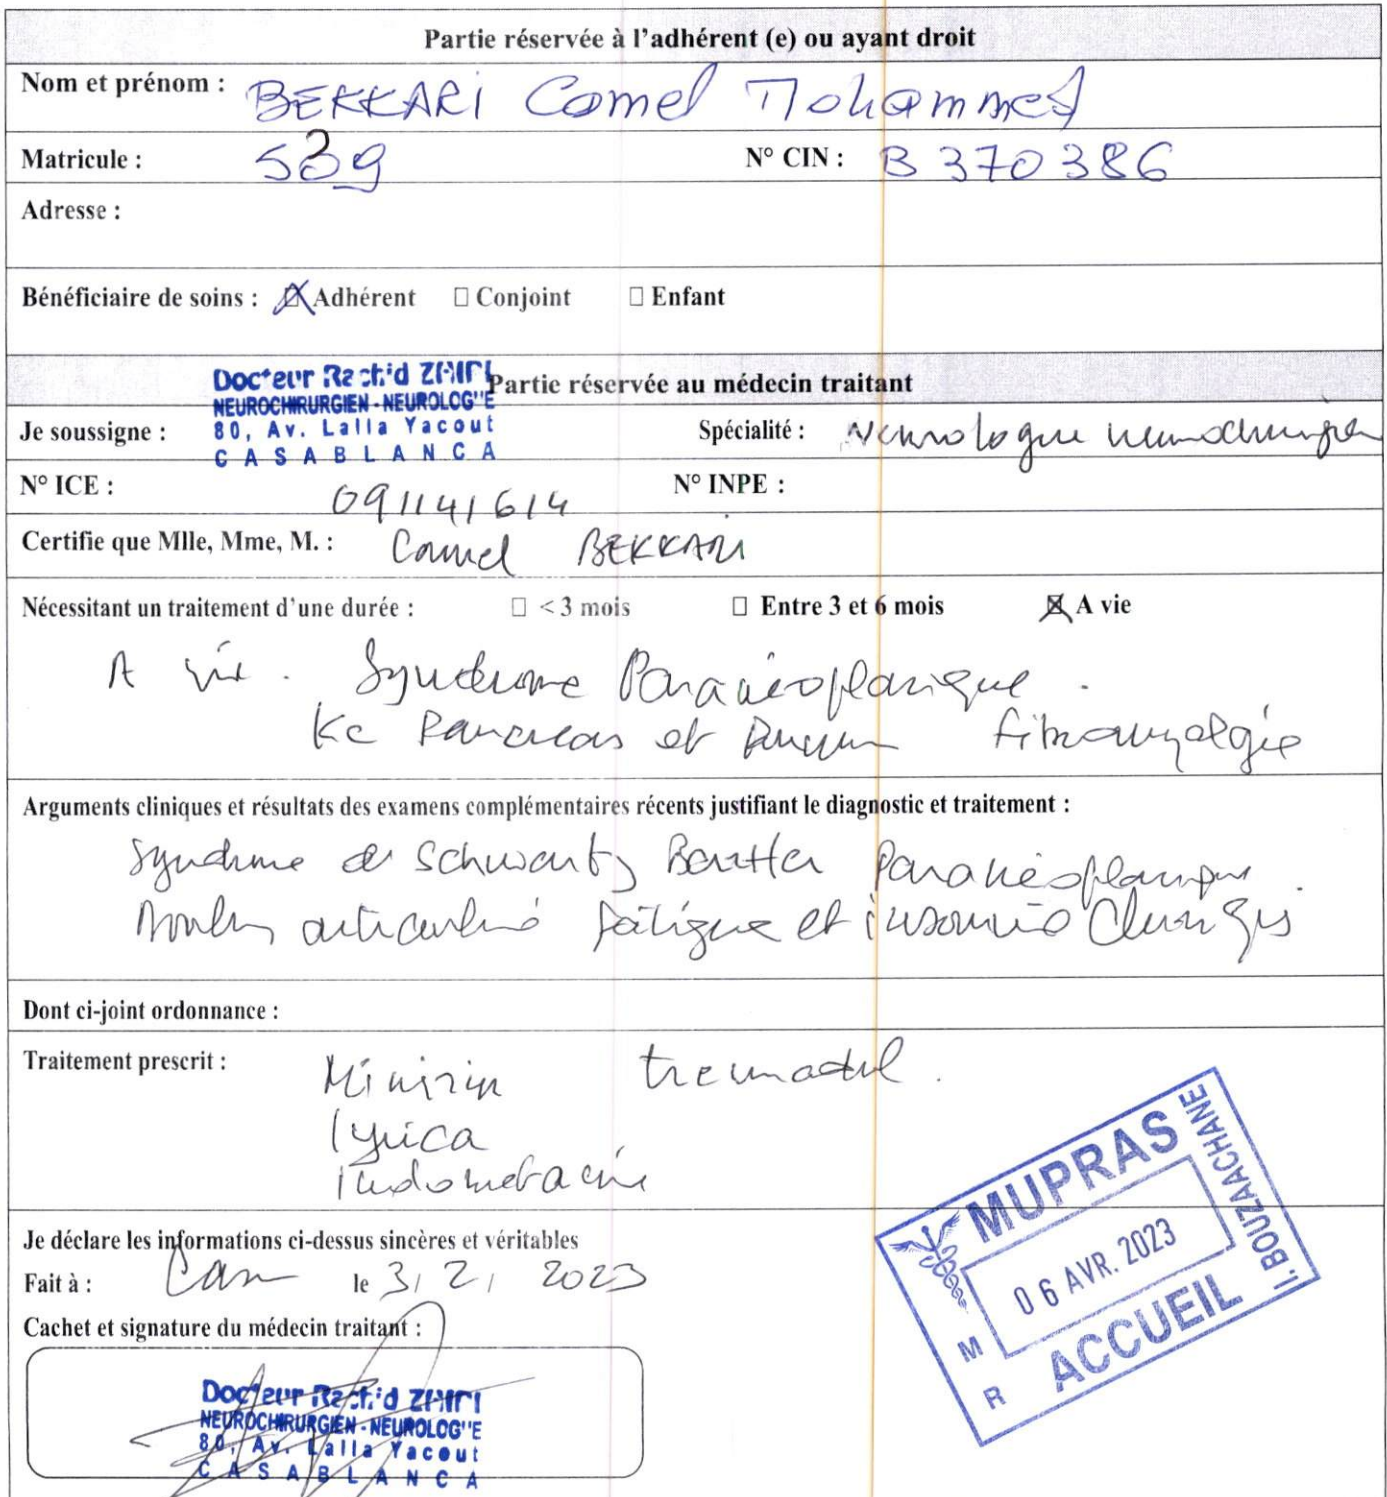 Partie réservée à l'adhérent (e) ou ayant droit
Nom et prénom : BEKKARI Camel Mohammed
Matricule : 539 N° CIN : B 370386
Adresse :
Bénéficiaire de soins : ☒ Adhérent ☐ Conjoint ☐ Enfant
Partie réservée au médecin traitant
Docteur Rachid
NEUROCHIRURGIEN - NEUROLOGUE
80, Av. Lalla Yacout
CASABLANCA
Je soussigne : Spécialité : Neurologue neurochirurgien
N° ICE : 091141614 N° INPE :
Certifie que Mlle, Mme, M. : Camel BEKKARI
Nécessitant un traitement d'une durée : ☐ < 3 mois ☐ Entre 3 et 6 mois ☒ A vie
A vie . Syndrome Paranéoplasique .
Kc Pancreas et fibromyalgie
Arguments cliniques et résultats des examens complémentaires récents justifiant le diagnostic et traitement :
Syndrome de Schwartz Bartter Paranéoplasique .
articulaire fatigue et insomnie
Dont ci-joint ordonnance :
Traitement prescrit : Minirin tremadol .
lyrica
Indometacine
Je déclare les informations ci-dessus sincères et véritables
Fait à : Casa le 3/ 2/ 2023
Cachet et signature du médecin traitant :
Docteur Rachid
NEUROCHIRURGIEN - NEUROLOGUE
80, Av. Lalla Yacout
CASABLANCA
MUPRAS
06 AVR. 2023
ACCUEIL
I. BOUZAACHANE
M
R